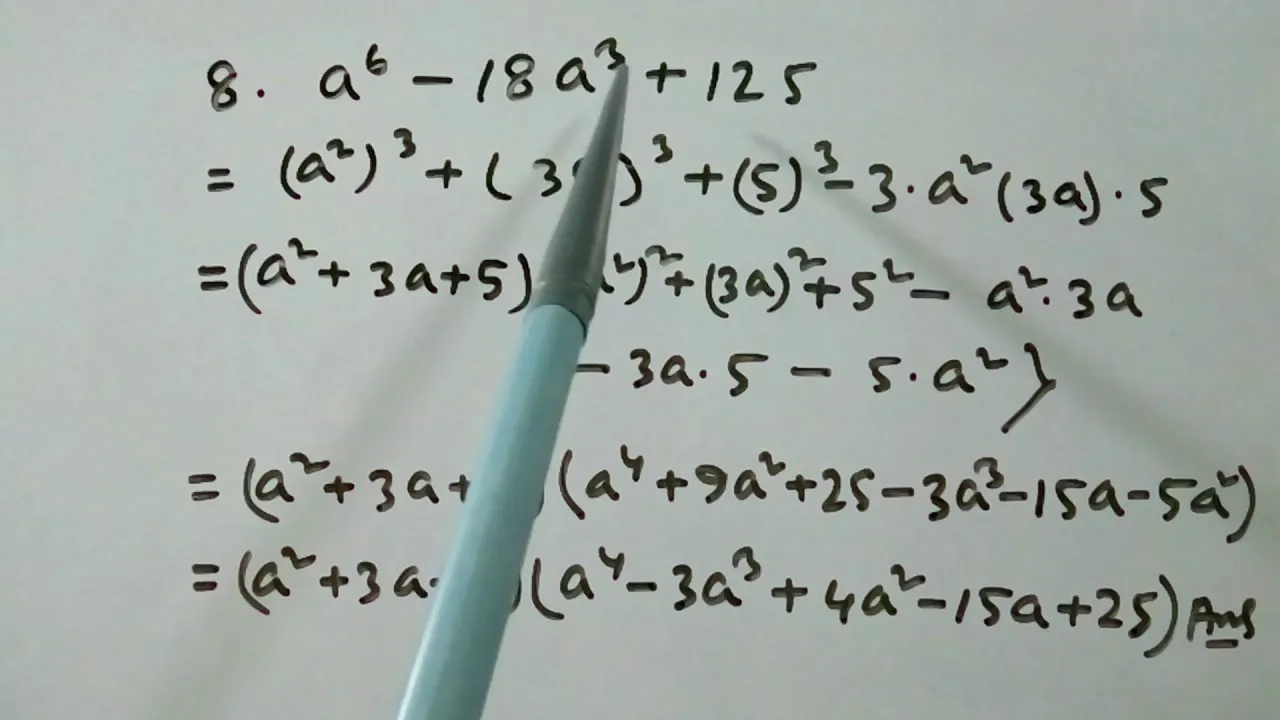 8. a⁶ - 18a³ + 125
= (a²)³ + (3 )³ + (5)³ - 3·a²(3a)·5
= (a² + 3a + 5) ²)² + (3a)² + 5² - a²·3a
- 3a·5 - 5·a²}
= (a² + 3a + ) (a⁴ + 9a² + 25 - 3a³ - 15a - 5a²)
= (a² + 3a )(a⁴ - 3a³ + 4a² - 15a + 25) Ans